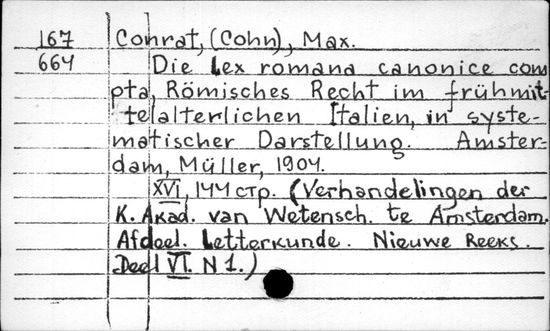 167 Conrat, (Cohn), Max.
664 Die Lex romana canonice com
pta, Römisches Recht im frühmit-
telalterlichen Italien, in syste-
matischer Darstellung. Amster-
dam, Müller, 1904.
XVI, 144 стр. (Verhandelingen der
K. Akad. van Wetensch. te Amsterdam.
Afdeel. Letterkunde. Nieuwe Reeks.
Deel VI. N 1.)